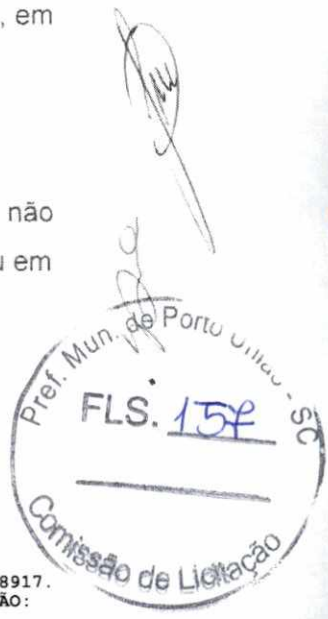 , em
não
u em
Pref. Mun. de Porto União - SC
FLS. 157
Comissão de Licitação
8917.
ÃO: